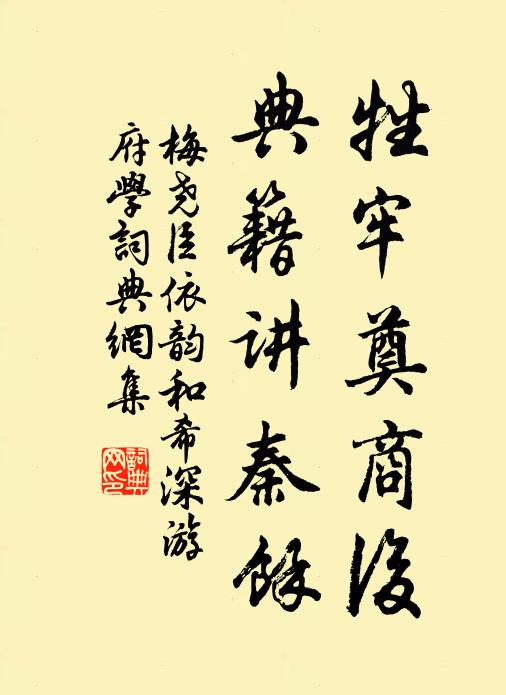 牲牢奠商後
典籍讲秦餘
梅尧臣依韵和希深游
府學詞典網集
詞典网印